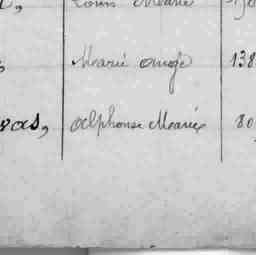 Louis Marie
Marie Ange 138
vas, Alphonse Marie 80